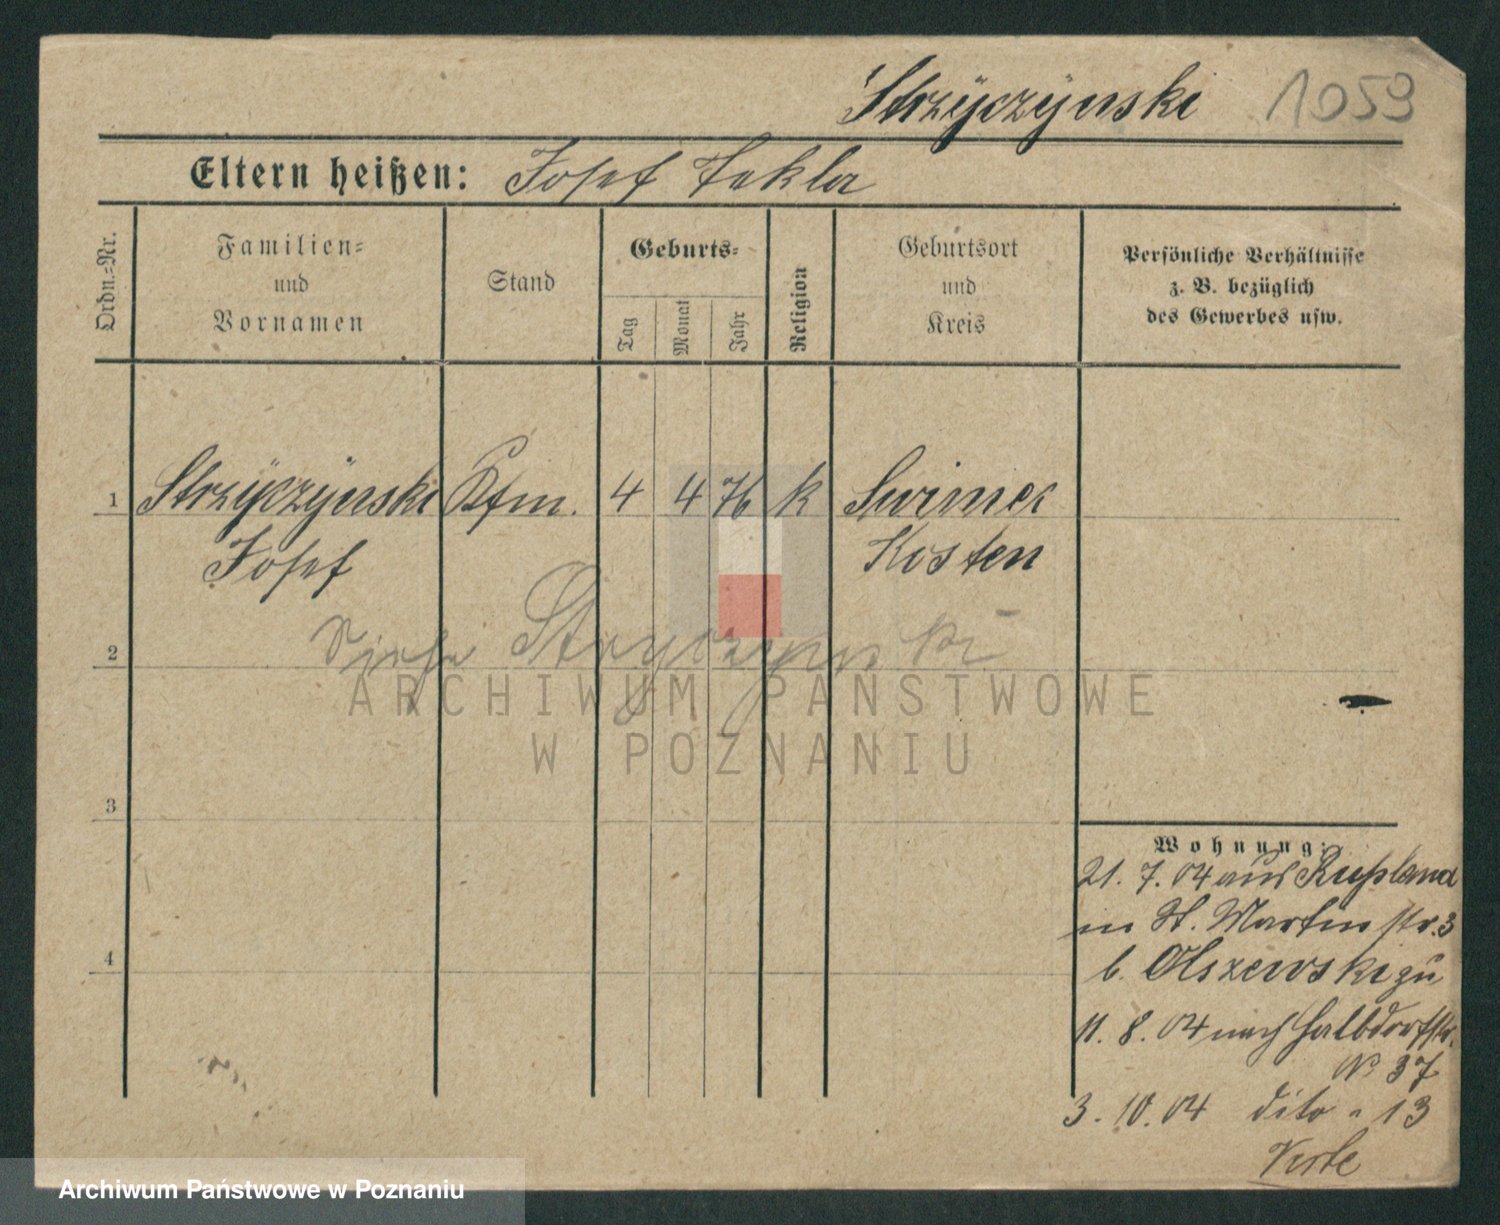 Strzyczynski 1059
Eltern heißen: Josef Tekla
Ordn.=Nr.
Familien=
und
Vornamen
Stand
Geburts=
Tag
Monat
Jahr
Religion
Geburtsort
und
Kreis
Persönliche Verhältnisse
z. B. bezüglich
des Gewerbes usw.
1 Strzyczynski Kfm. 4 4 76 k
Josef Kosten
Siehe
2
ARCHIWUM PAŃSTWOWE
W POZNANIU
3
Wohnung:
21. 7. 04 aus Rußland
in St. Martin str. 3
b. Olszewski zu
4
11. 8. 04 nach Halbdorfstr.
No 37
3. 10. 04 dito " 13
Archiwum Państwowe w Poznaniu